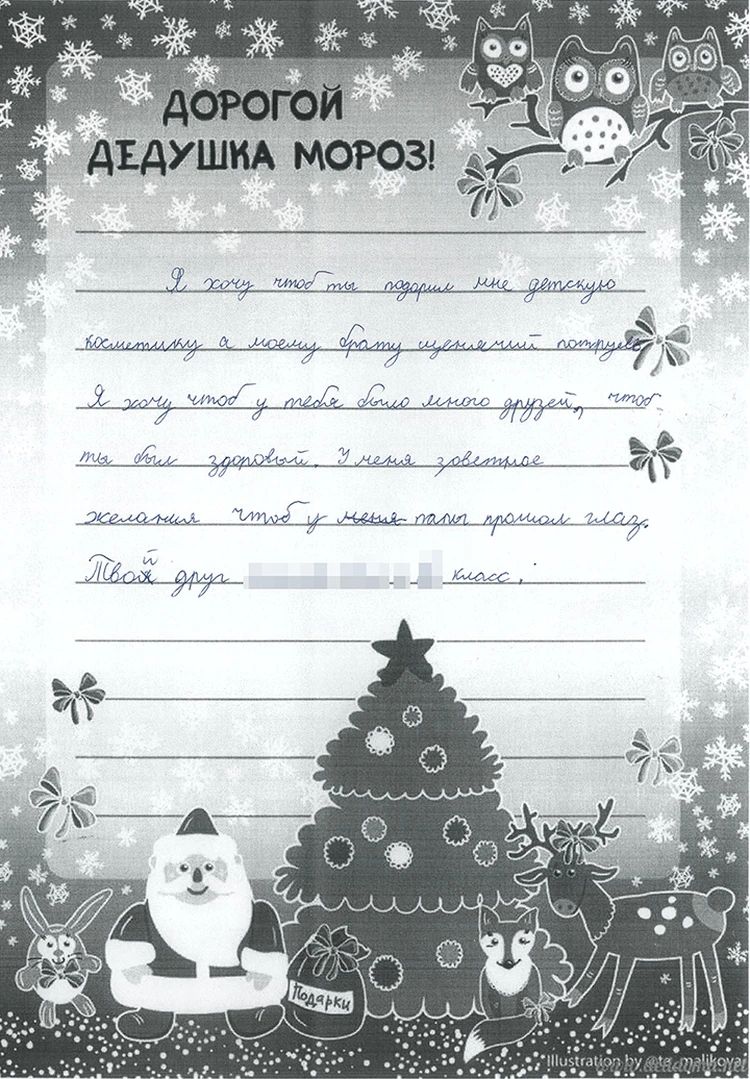 ДОРОГОЙ
ДЕДУШКА МОРОЗ!
Я хочу чтоб ты подарил мне детскую
косметику а моему брату щенячий патруль.
Я хочу чтоб у тебя было много друзей, чтоб
ты был здоровый. У меня зоветное
желания чтоб у меня папы прошол глаз.
Твой друг класс.
Подарки
Illustration by @te_malikova